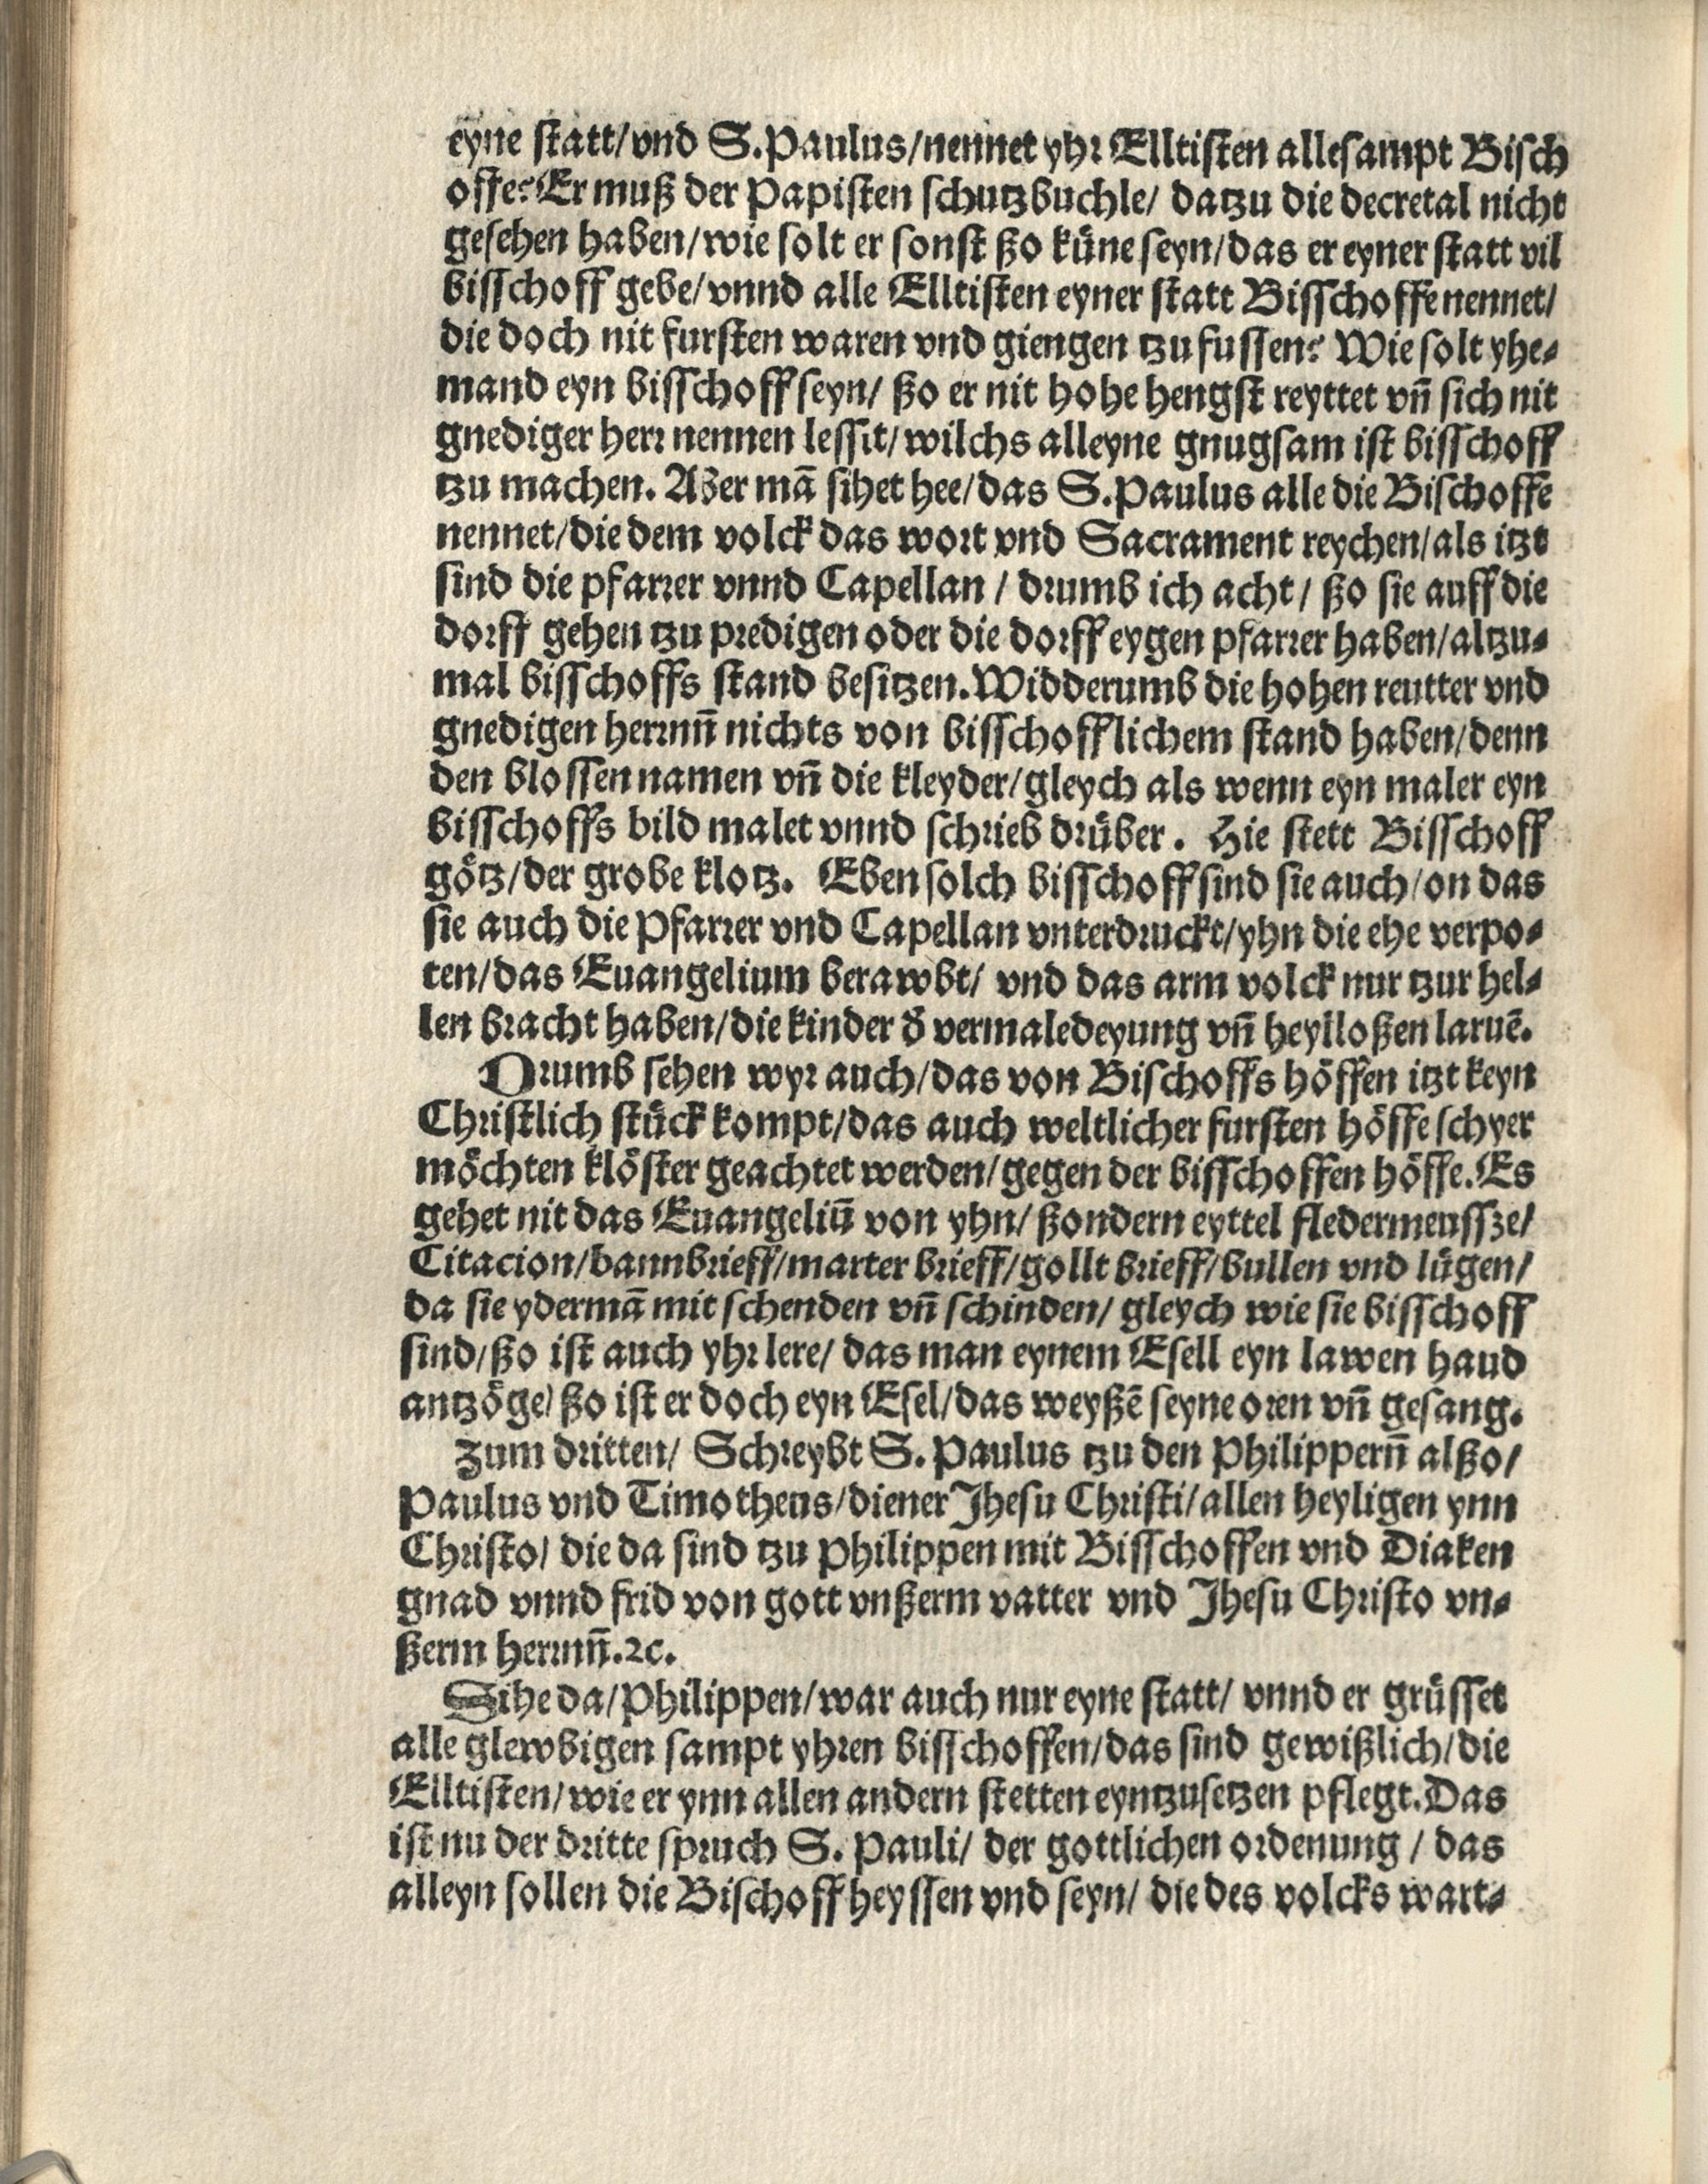 eyne statt/vnd S.Paulus/nennet yhr Elltisten allesampt Bisch
offe? Er muß der Papisten schutzbuchle/ datzu die decretal nicht
gesehen haben/wie solt er sonst ßo küne seyn/das er eyner statt vil
bisschoff gebe/vnnd alle Elltisten eyner statt Bisschoffe nennet/
die doch nit fursten waren vnd giengen tzu fussen? Wie solt yhe-
mand eyn bisschoff seyn/ ßo er nit hohe hengst reyttet vn̄ sich nit
gnediger herr nennen lessit/wilchs alleyne gnugsam ist bisschoff
tzu machen. Aber mā sihet hee/das S.Paulus alle die Bischoffe
nennet/die dem volck das wort vnd Sacrament reychen/als itzt
sind die pfarrer vnnd Capellan / drumb ich acht/ ßo sie auff die
dorff gehen tzu predigen oder die dorff eygen pfarrer haben/altzu-
mal bisschoffs stand besitzen. Widderumb die hohen reutter vnd
gnedigen herrnn̄ nichts von bisschofflichem stand haben/denn
den blossen namen vn̄ die kleyder/gleych als wenn eyn maler eyn
bisschoffs bild malet vnnd schrieb drüber. Hie stett Bisschoff
götz/der grobe klotz. Eben solch bisschoff sind sie auch/on das
sie auch die Pfarrer vnd Capellan vnterdruckt/yhn die ehe verpo-
ten/das Euangelium berawbt/ vnd das arm volck nur tzur hel-
len bracht haben/die kinder d̄ vermaledeyung vn̄ heylloßen laruē.
Drumb sehen wyr auch/das von Bischoffs höffen itzt keyn
Christlich stück kompt/das auch weltlicher fursten höffe schyer
möchten klöster geachtet werden/gegen der bisschoffen höffe. Es
gehet nit das Euangeliū von yhn/ ßondern eyttel fledermeussze/
Citacion/bannbrieff/marter brieff/gollt brieff/bullen vnd lügen/
da sie ydermā mit schenden vn̄ schinden/ gleych wie sie bisschoff
sind/ßo ist auch yhr lere/ das man eynem Esell eyn lawen haud
antzöge/ ßo ist er doch eyn Esel/das weyßē seyne oren vn̄ gesang.
Zum dritten/ Schreybt S. Paulus tzu den Philippern̄ alßo/
Paulus vnd Timotheus/diener Jhesu Christi/allen heyligen ynn
Christo/ die da sind tzu Philippen mit Bisschoffen vnd Diaken
gnad vnnd frid von gott vnßerm vatter vnd Jhesu Christo vn-
ßerm herrnn̄.ꝛc.
Sihe da/Philippen/war auch nur eyne statt/ vnnd er grüsset
alle glewbigen sampt yhren bisschoffen/das sind gewißlich/die
Elltisten/wie er ynn allen andern stetten eyntzusetzen pflegt. Das
ist nu der dritte spruch S. Pauli/ der gottlichen ordenung / das
alleyn sollen die Bischoff heyssen vnd seyn/ die des volcks wart-